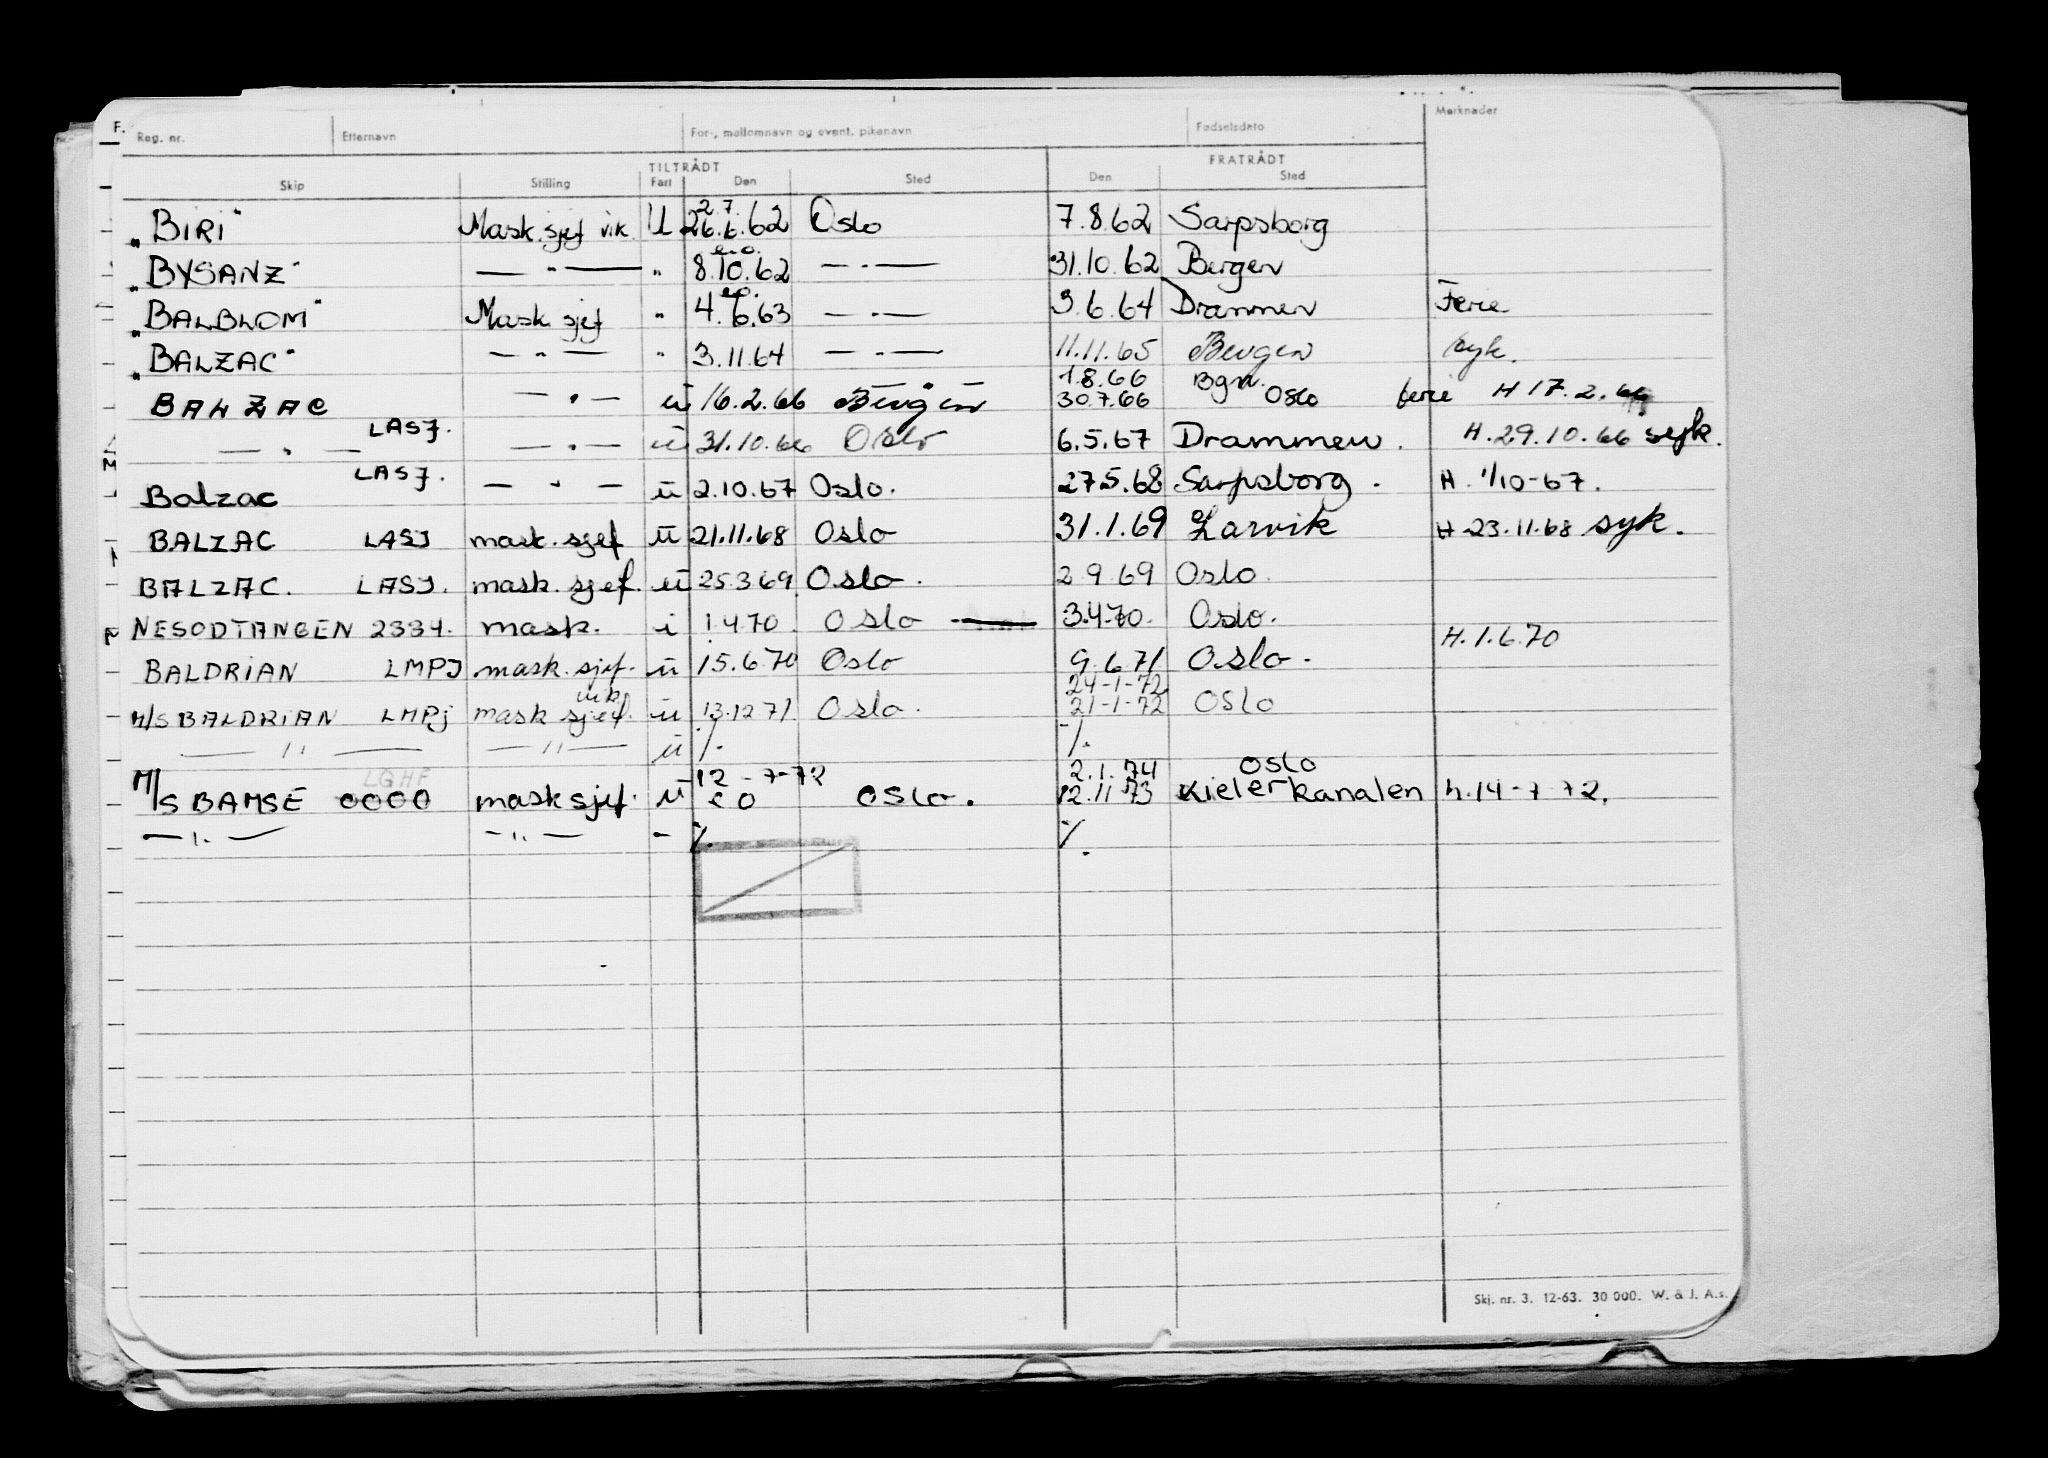 F. Reg. nr. Etternavn For-, mellomnavn og event. pikenavn Fødselsdato Merknader
TILTRÅDT FRATRÅDT
Skip Stilling Fart Den Sted Den Sted
2.7.
"BIRI" Mask.sjef vik. U 26.6.62 Oslo 7.8.62 Sarpsborg
e.o.
"BYSANZ" — " — " 8.10.62 — " — 31.10.62 Bergen
e.o.
"BALBLOM" Mask sjef " 4.6.63 — " — 3.6.64 Drammen Ferie
"BALZAC" — " — " 3.11.64 — " — 11.11.65 Bergen syk.
1.8.66 Bgn.
BALZAC — " — u 16.2.66 Bergen 30.7.66 Oslo ferie H 17.2.66
— " — LASJ. — " — u 31.10.66 Oslo 6.5.67 Drammen. H.29.10.66 syk.
Balzac LASJ. — " — u 2.10.67 Oslo. 27.5.68 Sarpsborg. H. 1/10-67.
BALZAC LASJ mask. sjef u 21.11.68 Oslo 31.1.69 Larvik H 23.11.68 syk.
BALZAC. LASJ. mask. sjef. u 25.3.69 Oslo. 2 9 69 Oslo.
NESODTANGEN 2334. mask. i 1.4.70. Oslo — 3.4.70. Oslo.
H.1.6.70
BALDRIAN LMPJ mask. sjef. u 15.6.70 Oslo 9.6.71 Oslo.
vik 24-1-72
M/S BALDRIAN LMPj mask sjef. u 13.12.71. Oslo. 21-1-72 OSLO
— " — — " — u %. %.
LGHF 12-7-72 2.1.74 OSLO
M/S BAMSE 0000 mask sjef. u e o OSLO. 12.11.73 Kielerkanalen h.14-7-72.
— " — — " — - %. %.
Skj. nr. 3. 12-63. 30 000. W. & J. A.s.